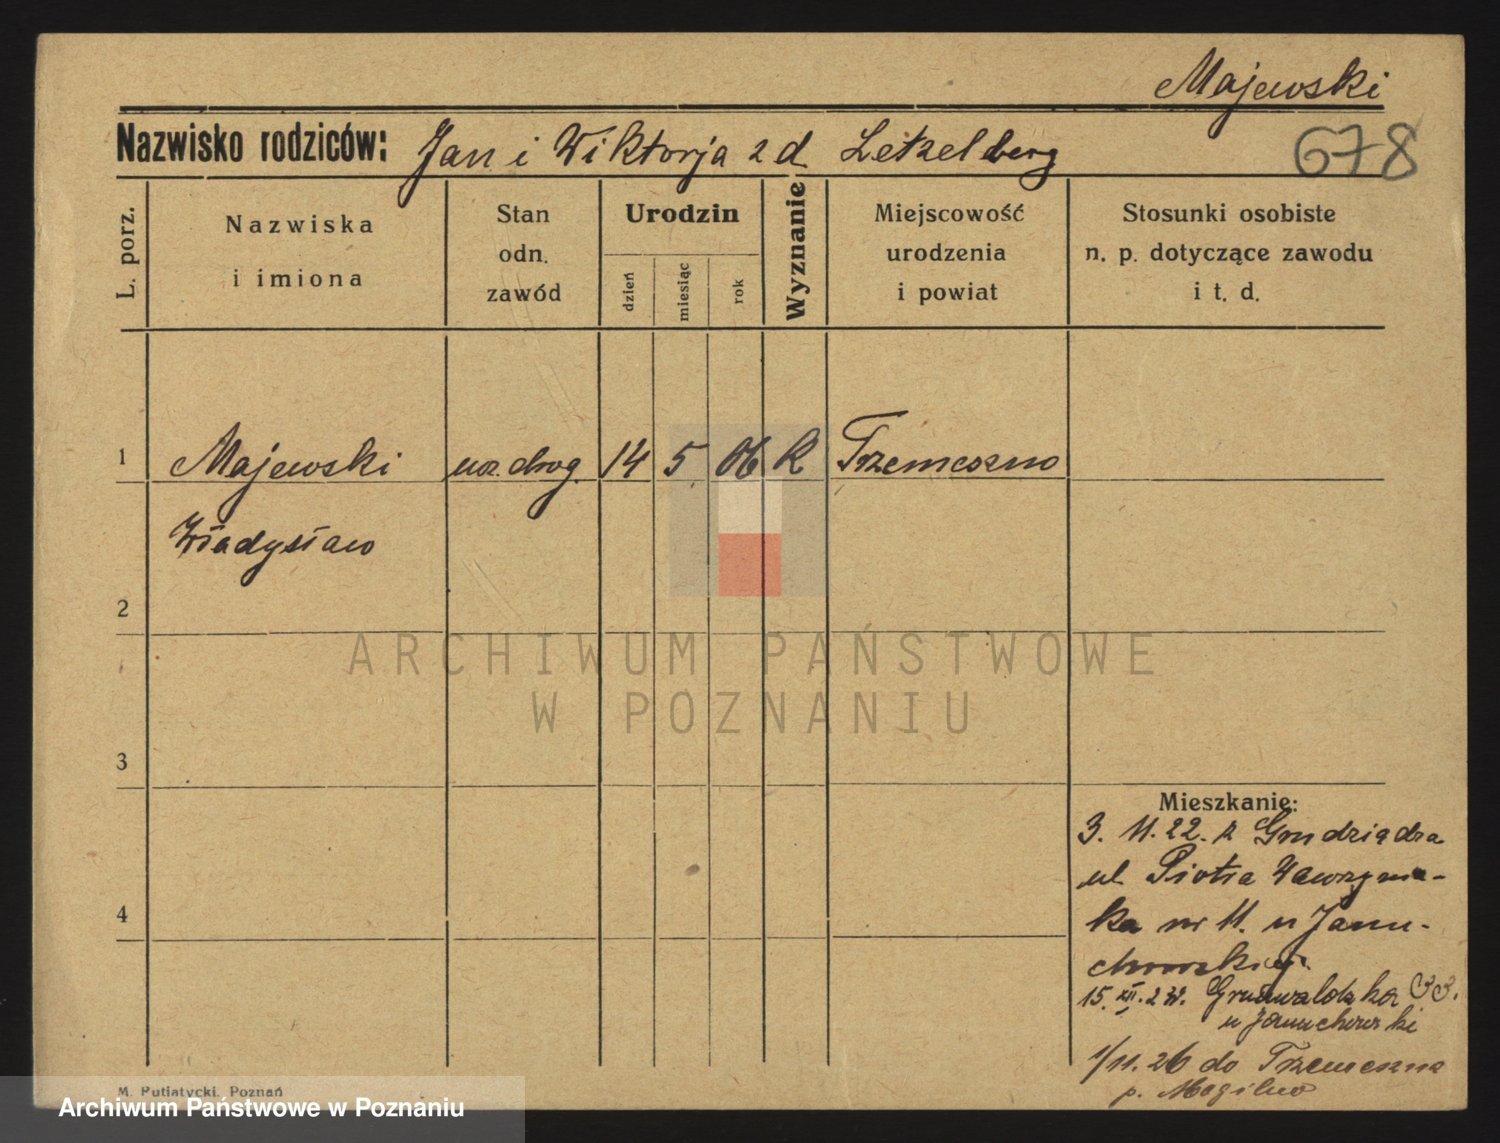 Majewski
Nazwisko rodziców: Jan i Wiktorja z d Letzelberg
678
L. porz.
Nazwiska
i imiona
Stan
odn.
zawód
Urodzin
dzień
miesiąc
rok
Wyznanie
Miejscowość
urodzenia
i powiat
Stosunki osobiste
n. p. dotyczące zawodu
i t. d.
1 Majewski ucz. drog. 14 5 06 R Trzemeszno
Władysław
2
ARCHIWUM PAŃSTWOWE
W POZNANIU
3
Mieszkanie:
3. 11. 22. z Grudziądza
ul Piotra Wawrzynia-
4
ka nr 11. u Janu-
chowskiej.
15. XII. Grunwaldzka 33.
u Januchowski
1/11. 26 do Trzemeszna
p. Mogilno
M. Putiatycki, Poznań
Archiwum Państwowe w Poznaniu